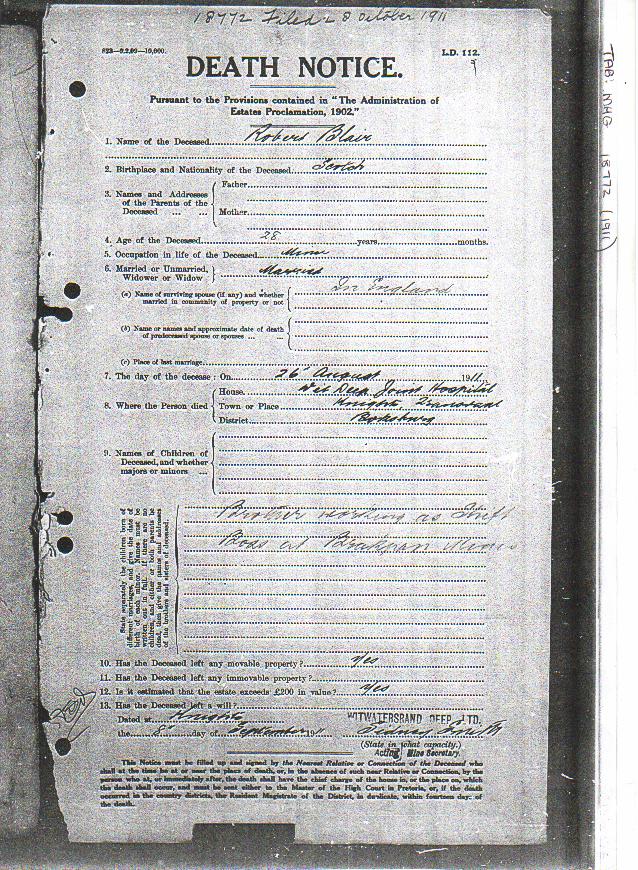 18772 Filed 28 October 1911
823—9.2.09—10,000.
L.D. 112.
DEATH NOTICE.
Pursuant to the Provisions contained in "The Administration of
Estates Proclamation, 1902."
1. Name of the Deceased Robert Blair
2. Birthplace and Nationality of the Deceased Scotch
3. Names and Addresses of the Parents of the Deceased ... ...
Father
Mother
4. Age of the Deceased 28 years months.
5. Occupation in life of the Deceased Miner
6. Married or Unmarried, Widower or Widow Married
(a) Name of surviving spouse (if any) and whether married in community of property or not
In England
(b) Name or names and approximate date of death of predeceased spouse or spouses ... ...
(c) Place of last marriage
7. The day of the decease: On 26' August 1911
8. Where the Person died
House Wit Deep Joint Hospital
Town or Place Knights, Transvaal
District Boksburg
9. Names of Children of Deceased, and whether majors or minors ...
State separately the children born of
different marriages, and give the date of
birth of each minor. Names must be
written out in full. If there are no
children, and either or both parents be
dead, then give the names and addresses
of the brothers and sisters of deceased.
Brother working as Shift
Boss at Brakpan Mines
10. Has the Deceased left any movable property? Yes
11. Has the Deceased left any immovable property?
12. Is it estimated that the estate exceeds £200 in value? Yes
13. Has the Deceased left a will?
Dated at Knights
WITWATERSRAND DEEP LTD.
the 8' day of September 1911
Sidney Smith
(State in what capacity.)
Acting Mine Secretary.
This Notice must be filled up and signed by the Nearest Relative or Connection of the Deceased who
shall at the time be at or near the place of death, or, in the absence of such near Relative or Connection, by the
person who at, or immediately after, the death shall have the chief charge of the house in, or the place on, which
the death shall occur, and must be sent either to the Master of the High Court in Pretoria, or, if the death
occurred in the country districts, the Resident Magistrate of the District, in duplicate, within fourteen days of
the death.
TAB: MHG 18772 (1911)